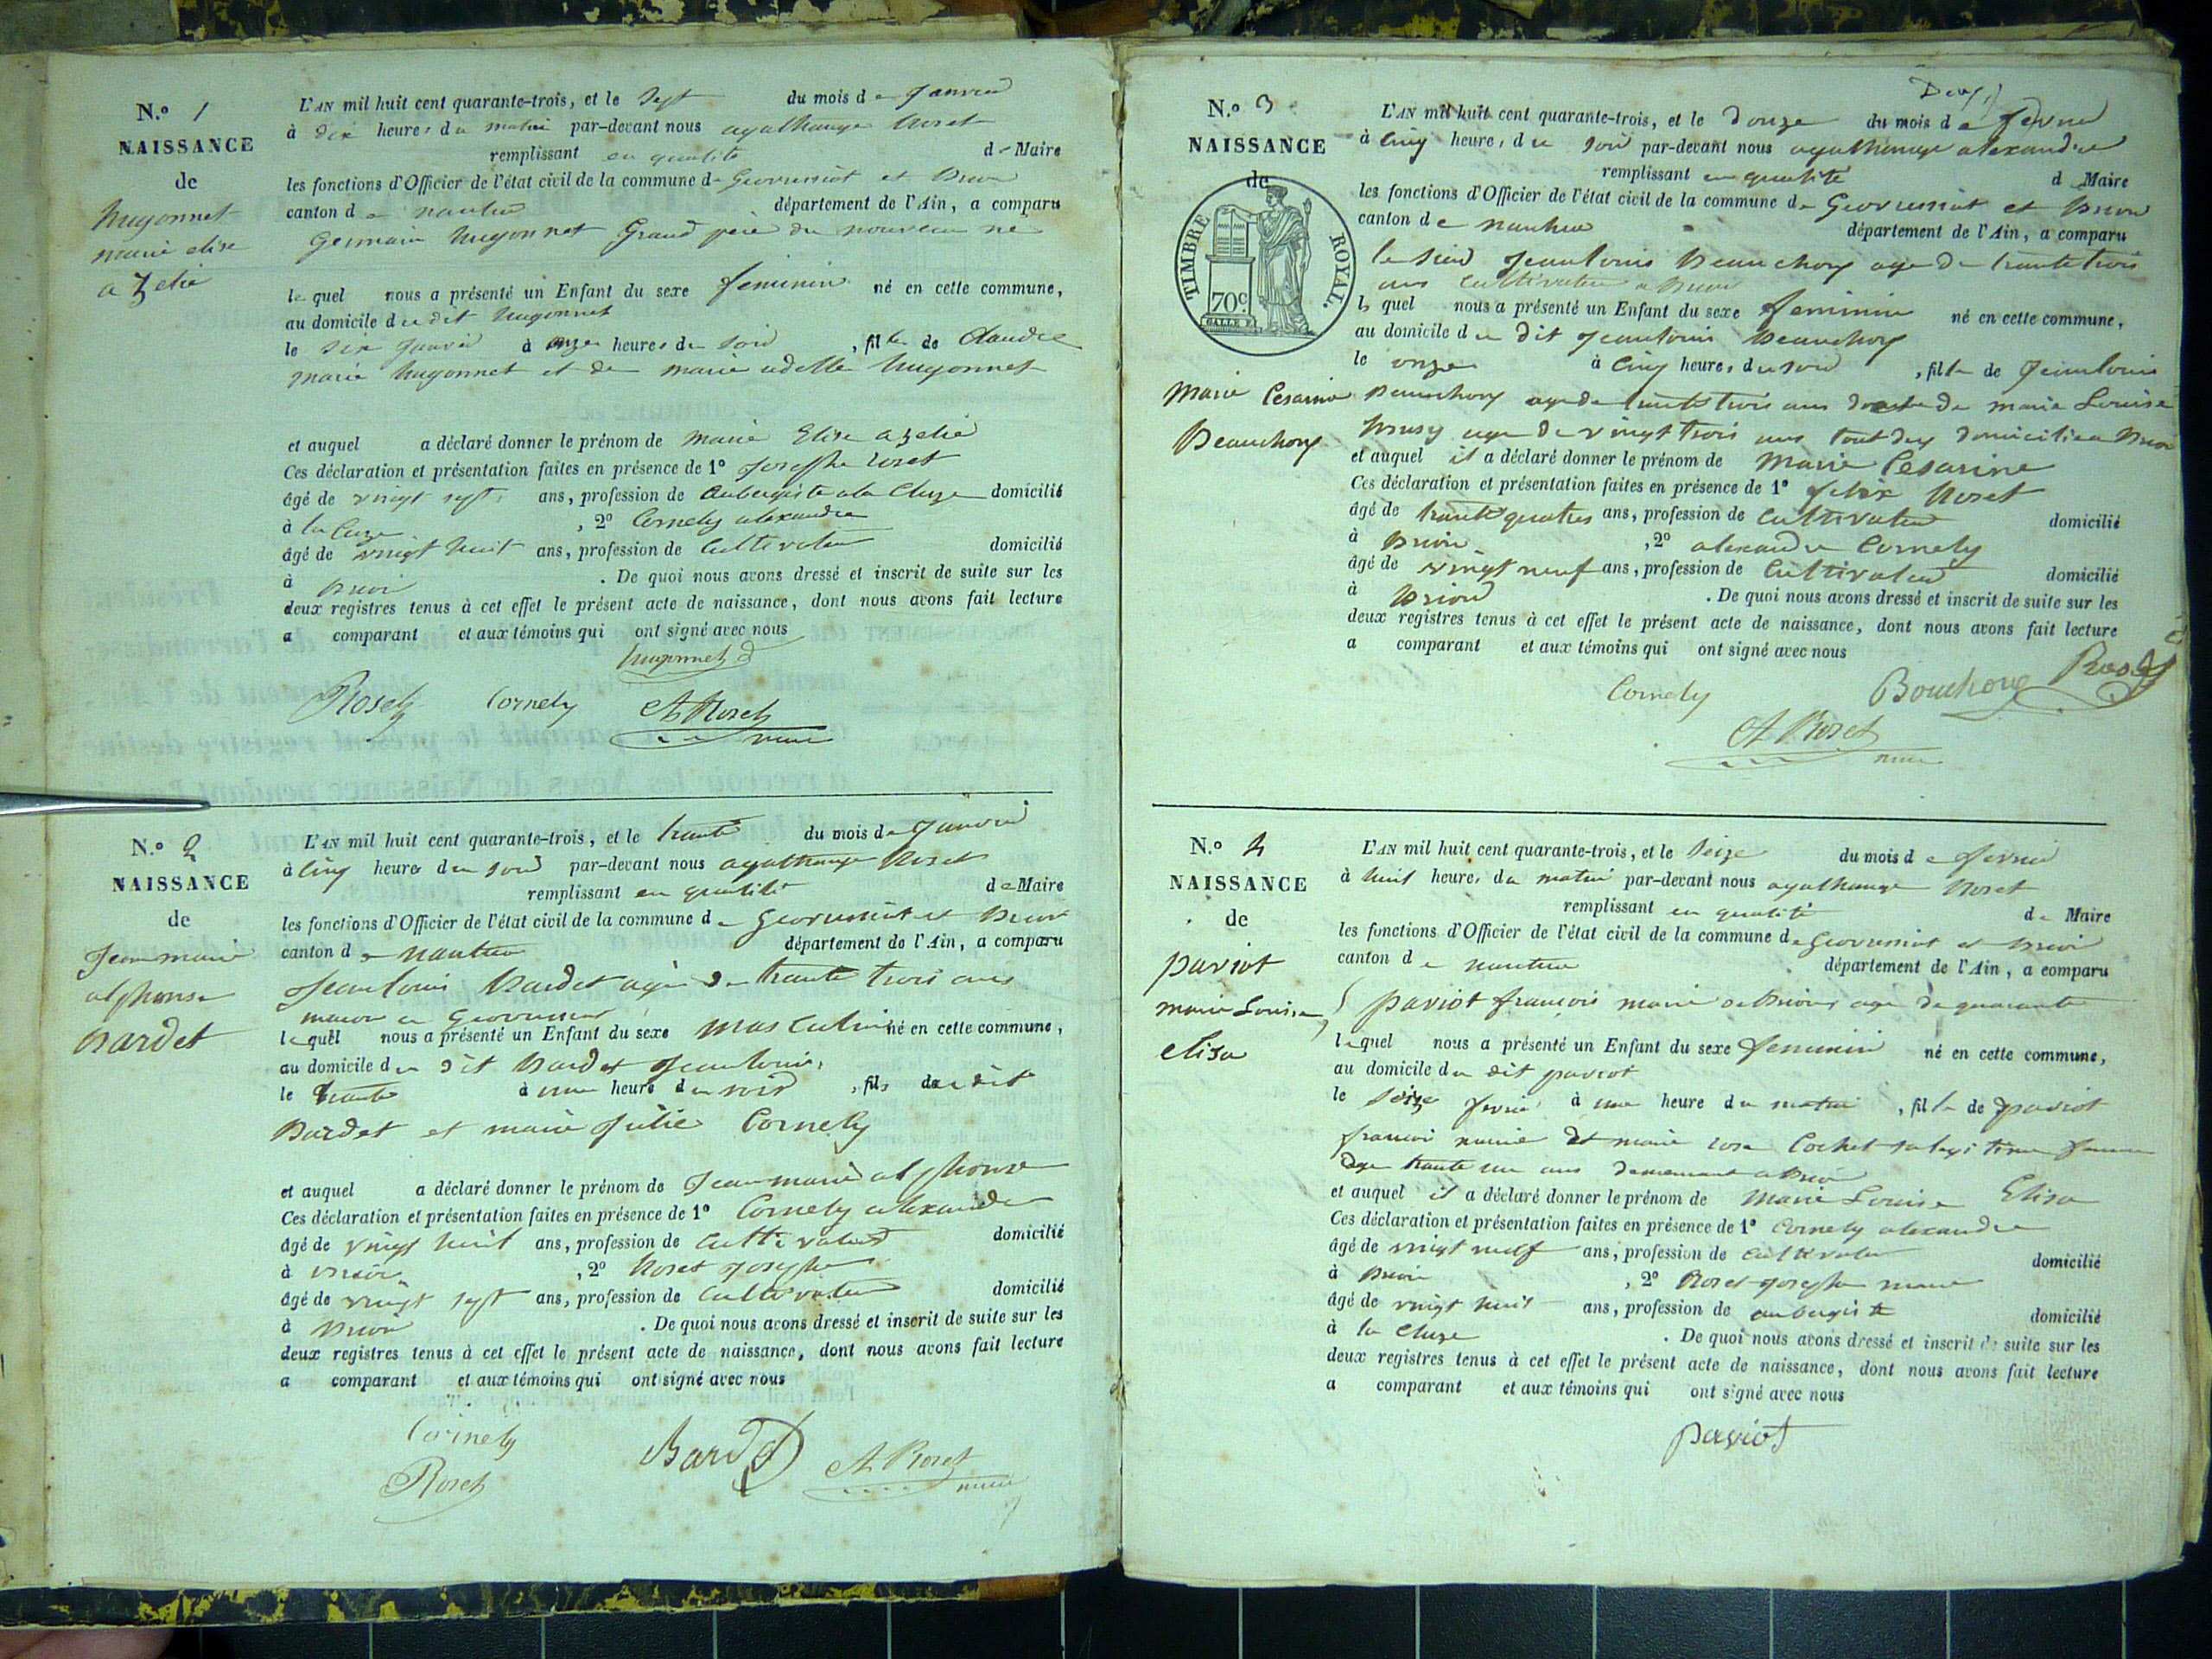 N.º 1
NAISSANCE
de
hugonnet
marie elise
azelie
L'AN mil huit cent quarante-trois, et le sept du mois de Janvier
à dix heures du matin par-devant nous agathange Roset
remplissant en qualité de Maire
les fonctions d'Officier de l'état civil de la commune de Geovressiat et Brion
canton de nantua département de l'Ain, a comparu
Germain hugonnet Grand père du nouveau né
lequel nous a présenté un Enfant du sexe feminin né en cette commune,
au domicile du dit hugonnet
le six janvier à onze heures du soir, fille de Claude
marie hugonnet et de marie adelle hugonnet
et auquel a déclaré donner le prénom de marie Elise azelie
Ces déclaration et présentation faites en présence de 1º Josephe Roset
âgé de vingt sept ans, profession de aubergiste a la Cluze domicilié
à la Cluze, 2º Cornely alexandre
âgé de vingt huit ans, profession de Cultivateur domicilié
à Brion. De quoi nous avons dressé et inscrit de suite sur les
deux registres tenus à cet effet le présent acte de naissance, dont nous avons fait lecture
a comparant et aux témoins qui ont signé avec nous
hugonnet
Roset Cornely A Roset
maire
N.º 2
NAISSANCE
de
Jean marie
alphonse
Bardet
L'AN mil huit cent quarante-trois, et le trante du mois de Janvier
à cinq heures du soir par-devant nous agathange Roset
remplissant en qualité de Maire
les fonctions d'Officier de l'état civil de la commune de Geovressiat et Brion
canton de nantua département de l'Ain, a comparu
Jean louis Bardet agé de trante trois ans
macon a Geovressiat
lequel nous a présenté un Enfant du sexe masculin né en cette commune,
au domicile du dit Bardet Jean louis,
le trante à une heure du soir, fils du dit
Bardet et marie Julie Cornely
et auquel a déclaré donner le prénom de Jean marie alphonse
Ces déclaration et présentation faites en présence de 1º Cornely alexandre
âgé de vingt huit ans, profession de Cultivateur domicilié
à Brion, 2º Roset Josephe
âgé de vingt sept ans, profession de Cultivateur domicilié
à Brion. De quoi nous avons dressé et inscrit de suite sur les
deux registres tenus à cet effet le présent acte de naissance, dont nous avons fait lecture
a comparant et aux témoins qui ont signé avec nous
Cornely
Roset Bardet A Roset
maire
N.º 3
NAISSANCE
de
TIMBRE ROYAL.
70 c.
Marie Cesarine
Beauchory
L'AN mil huit cent quarante-trois, et le Douze du mois de fevrier
à cinq heures du soir par-devant nous agathange alexandre
remplissant en qualité de Maire
les fonctions d'Officier de l'état civil de la commune de Geovressiat et Brion
canton de nantua département de l'Ain, a comparu
le sieur Jean louis Beauchory age de trante trois
ans Cultivateur a Brion
lequel nous a présenté un Enfant du sexe feminin né en cette commune,
au domicile du dit Jean louis Beauchory
le onze à cinq heures du soir, fille de Jean louis
Beauchory age de trante trois ans et de marie Louise
age de vingt trois ans tout deux domicilié a Brion
et auquel il a déclaré donner le prénom de Marie Césarine
Ces déclaration et présentation faites en présence de 1º felix Roset
âgé de trante quatres ans, profession de Cultivateur domicilié
à Brion, 2º alexandre Cornely
âgé de vingt neuf ans, profession de Cultivateur domicilié
à Brion. De quoi nous avons dressé et inscrit de suite sur les
deux registres tenus à cet effet le présent acte de naissance, dont nous avons fait lecture
a comparant et aux témoins qui ont signé avec nous
Cornely
A Roset
maire
N.º 4
NAISSANCE
de
paviot
marie Louise
elisa
L'AN mil huit cent quarante-trois, et le seize du mois de fevrier
à huit heures du matin par-devant nous agathange Roset
remplissant en qualité de Maire
les fonctions d'Officier de l'état civil de la commune de Geovressiat et Brion
canton de nantua département de l'Ain, a comparu
paviot françois marie de Brion age de quarante
lequel nous a présenté un Enfant du sexe feminin né en cette commune,
au domicile du dit paviot
le seize fevrier à une heure du matin, fille de paviot
francois marie et marie rose Cochet sa legitime femme
age trante un ans demeurant a Brion
et auquel il a déclaré donner le prénom de Marie Louise Elisa
Ces déclaration et présentation faites en présence de 1º Cornely alexandre
âgé de vingt neuf ans, profession de Cultivateur domicilié
à Brion, 2º Roset Josephe marie
âgé de vingt huit ans, profession de aubergiste domicilié
à la Cluze. De quoi nous avons dressé et inscrit de suite sur les
deux registres tenus à cet effet le présent acte de naissance, dont nous avons fait lecture
a comparant et aux témoins qui ont signé avec nous
paviot